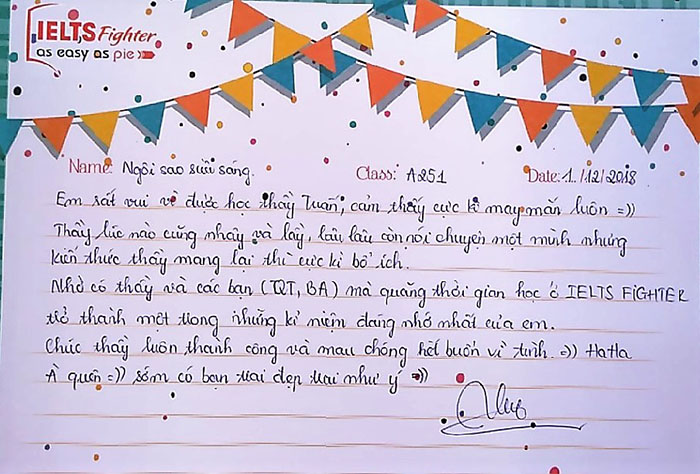 IELTS Fighter
as easy as pie
Name: Ngôi sao siêu sáng. Class: A251 Date: 1../12/2018
Em rất vui vì được học thầy Tuấn, cảm thấy cực kì may mắn luôn =))
Thầy lúc nào cũng nhây và lầy, lâu lâu còn nói chuyện một mình nhưng
kiến thức thầy mang lại thì cực kì bổ ích.
Nhờ có thầy và các bạn (TQT, BA) mà quãng thời gian học ở IELTS FIGHTER
trở thành một trong những kỉ niệm đáng nhớ nhất của em.
Chúc thầy luôn thành công và mau chóng hết buồn vì tình =)) HaHa
À quên =)) sớm có bạn trai đẹp trai như ý =))